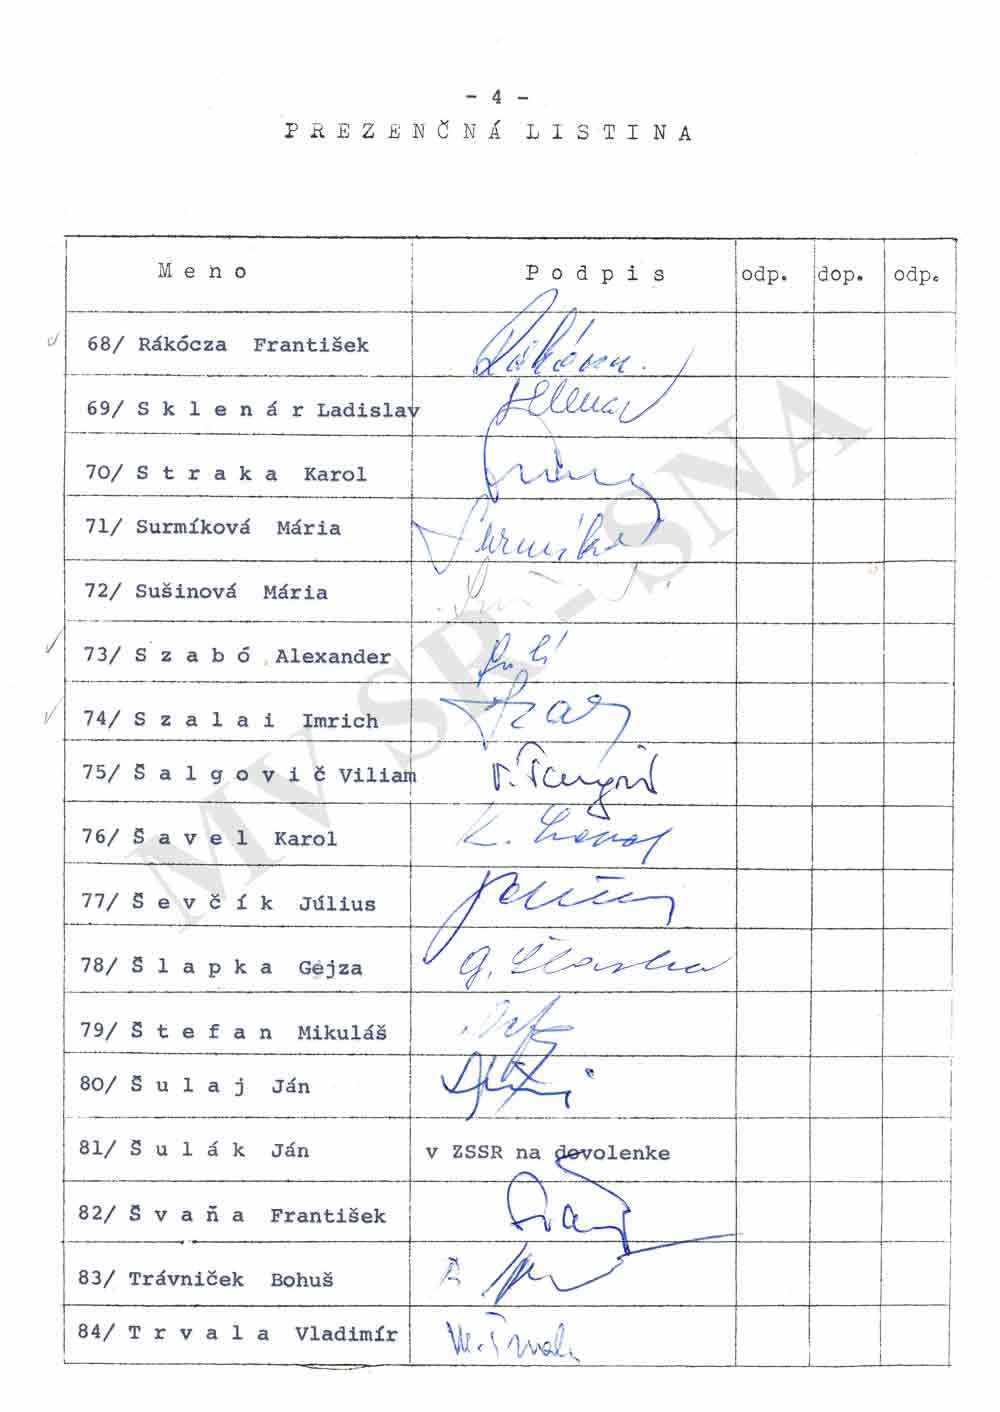 - 4 -
P R E Z E N Č N Á  L I S T I N A
M e n o P o d p i s odp. dop. odp.
68/ Rákócza František
69/ S k l e n á r Ladislav
70/ S t r a k a Karol
71/ Surmíková Mária
72/ Sušinová Mária
73/ S z a b ó Alexander
74/ S z a l a i Imrich
75/ Š a l g o v i č Viliam
76/ Š a v e l Karol
77/ Š e v č í k Július
78/ Š l a p k a Gejza
79/ Š t e f a n Mikuláš
80/ Š u l a j Ján
81/ Š u l á k Ján v ZSSR na dovolenke
82/ Š v a ň a František
83/ Trávniček Bohuš
84/ T r v a l a Vladimír
MV SR - SNA